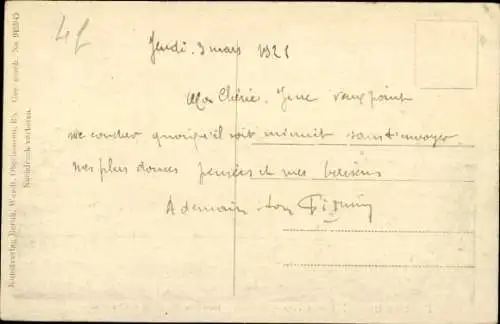 4f
Jeudi. 3 mars 1921
Ma Chérie. Je ne veux point
me coucher quoiqu'il soit minuit sans t'envoyer
mes plus douces pensées et mes baisers
A demain ton
Nachdruck verboten.
Ges. gesch. No